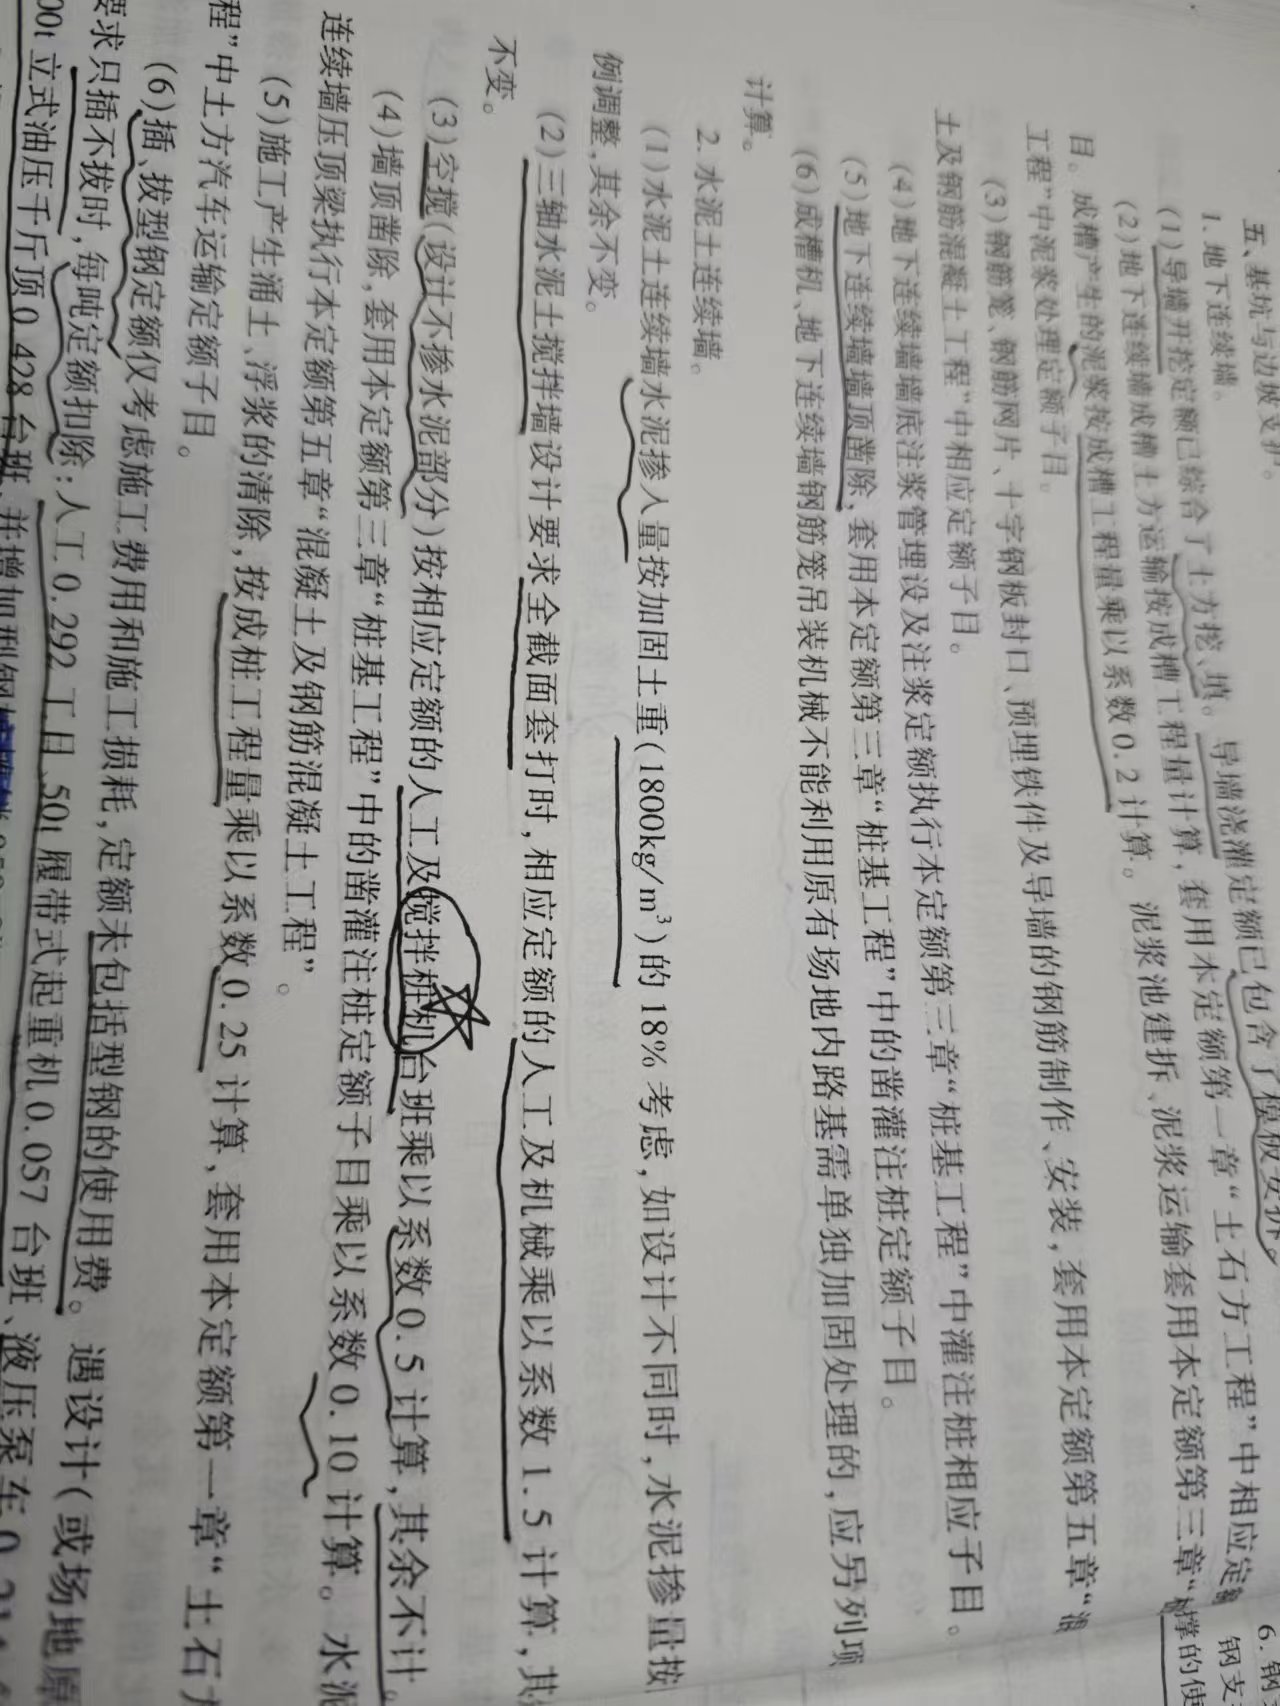 五、基坑与边坡支护。
1. 地下连续墙。
(1)导墙开挖定额已综合了土方挖、填。导墙浇灌定额已包含了模板安拆。
(2)地下连续墙成槽土方运输按成槽工程量计算,套用本定额第一章“土石方工程”中相应定额
目。成槽产生的泥浆按成槽工程量乘以系数0.2计算。泥浆池建拆、泥浆运输套用本定额第三章“
工程”中泥浆处理定额子目。
(3)钢筋笼、钢筋网片、十字钢板封口、预埋铁件及导墙的钢筋制作、安装,套用本定额第五章“混
土及钢筋混凝土工程”中相应定额子目。
(4)地下连续墙墙底注浆管埋设及注浆定额执行本定额第三章“桩基工程”中灌注桩相应子目。
(5)地下连续墙墙顶凿除,套用本定额第三章“桩基工程”中的凿灌注桩定额子目。
(6)成槽机、地下连续墙钢筋笼吊装机械不能利用原有场地内路基需单独加固处理的,应另列项
计算。
2. 水泥土连续墙。
(1)水泥土连续墙水泥掺入量按加固土重(1800kg/m³)的18%考虑,如设计不同时,水泥掺量按
例调整,其余不变。
(2)三轴水泥土搅拌墙设计要求全截面套打时,相应定额的人工及机械乘以系数1.5计算,其
不变。
(3)空搅(设计不掺水泥部分)按相应定额的人工及搅拌桩机台班乘以系数0.5计算,其余不计。
(4)墙顶凿除,套用本定额第三章“桩基工程”中的凿灌注桩定额子目乘以系数0.10计算。水泥
连续墙压顶梁执行本定额第五章“混凝土及钢筋混凝土工程”。
(5)施工产生涌土、浮浆的清除,按成桩工程量乘以系数0.25计算,套用本定额第一章“土石方
程”中土方汽车运输定额子目。
(6)插、拔型钢定额仅考虑施工费用和施工损耗,定额未包括型钢的使用费。遇设计(或场地原
要求只插不拔时,每吨定额扣除:人工0.292工日、50t履带式起重机0.057台班、液压泵车0.21
00t立式油压千斤顶0.428台班,并增加型钢
6. 钢
钢支
撑的使